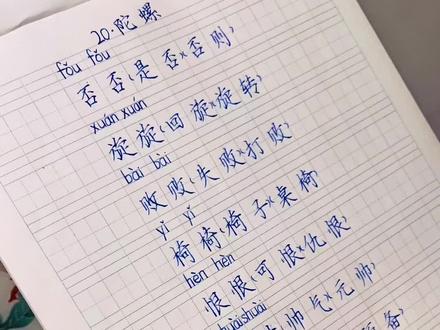 20.陀螺
fǒu fǒu
否否(是否)(否则)
xuán xuán
旋旋(回旋)(旋转)
bài bài
败败(失败)(打败)
yǐ yǐ
椅椅(椅子)(桌椅)
hèn hèn
恨恨(可恨)(仇恨)
shuài
帅气)(元帅)
备)